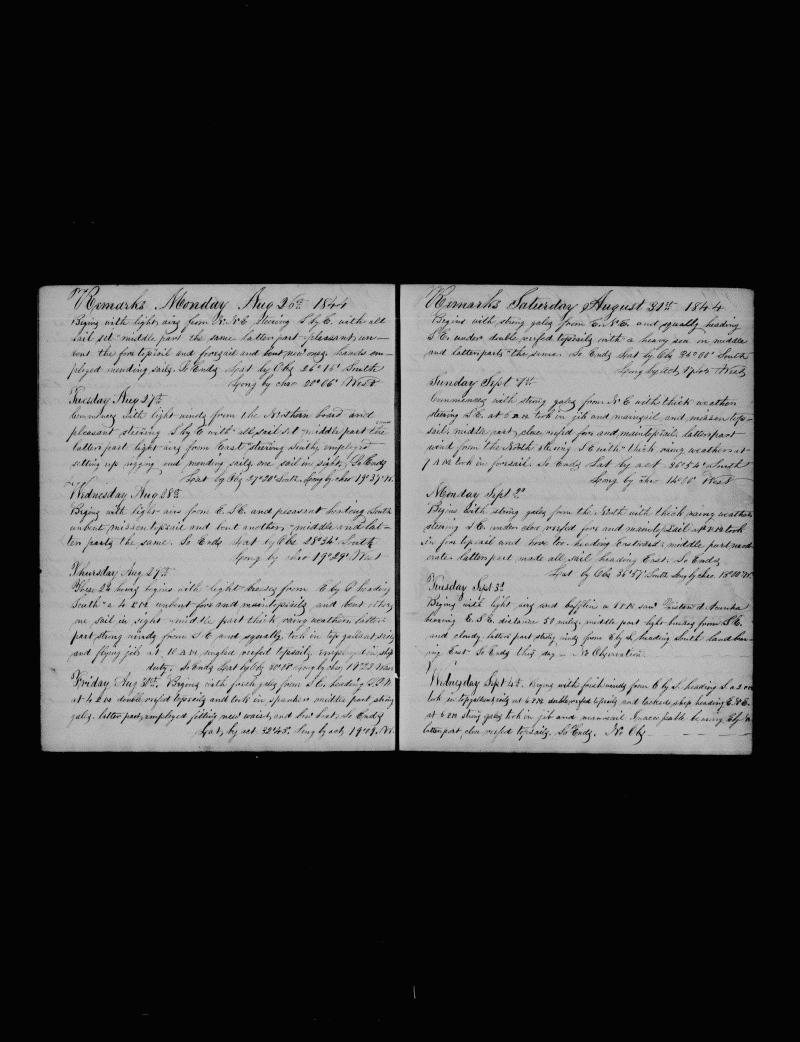 Remarks Monday Aug 26th 1844
Begins with light airs from N.N.E. steering S by E. with all
sail set middle part the same latter part pleasant; un-
bent the fore topsail and foresail and bent new ones. hands em-
ployed mending sails. So Ends Lat by Obs 26°16' South
Long by chro 20°06' West
Tuesday Aug 27th
Commences with light winds from the Northern board and
pleasant steering S by E with all sail set middle part the same
latter part light airs from East steering South; employed
setting up rigging and mending sails. one sail in sight, So Ends
Lat by Obs 27°20' South. Long by chro 19°37' W.
Wednesday Aug 28th
Begins with light airs from E.S.E. and pleasant heading South
unbent mizen topsail and bent another, middle and lat-
ter parts the same. So Ends Lat by Obs 28°34' South
Long by chro 19°29' West
Thursday Aug 29th
These 24 hours begins with light breezes from E by S heading
South at 4 P.M. unbent fore and main topsails and bent others
one sail in sight middle part thick rainy weather latter
part strong winds from S E and squally, took in top gallant sails
and flying jib at 10 A.M. single reefed topsails, employed in ship
duty. So Ends Lat by Obs 30°18' Long by chro, West
Friday Aug 30th. Begins with fresh gales from S.E. heading S.S.W.
at 4 P.M. double reefed topsails and took in spanker middle part strong
gales. latter part, employed fitting new waist, and bow boat. So Ends
Lat, by act. 32°45'. Long by act, 19°09'. W.
Remarks Saturday August 31st 1844
Begins with strong gales from E.N.E. and squally heading
S.E. under double reefed topsails with a heavy sea on middle
and latter parts the same. So Ends Lat by Obs 34°00' South
Long by act, West
Sunday Sept 1st
Commences with strong gales from N.E with thick weather
steering S.E. at 2 P.M. took in jib and mainsail and mizen top-
sail; middle part, close reefd fore and, main topsails. latter part
wind from the North steering S E with thick rainy weather at
7 A.M. took in foresail. So Ends Lat by act. 35°54' South
Long by chro West
Monday Sept 2d
Begins with strong gales from the North with thick rainy weather
steering S.E. under close reefed fore and main topsail at took
in fore topsail and hove too. heading Eastward; middle part mod-
erate latter part made all sail heading East. So Ends
Lat by Obs 36°57' South Long by chro.
Tuesday Sept 3d
Begins with light airs and baffling at saw Tristan d. Acunha
bearing E.S.E. distance miles, middle part light breezes from S.E.
and cloudy. latter part strong winds from E by S, heading South land bear-
ing East So Ends this day — No Observation
Wednesday Sept 4th. Begins with fresh winds from E by S. heading S. at 2 P.M.
took in topgallantsails at 4 P.M. double reefed topsails and tacked ship heading
at 6 P.M. strong gales took in jib and mainsail. bearing
latter part, close reefed topsails, So Ends. No Obs